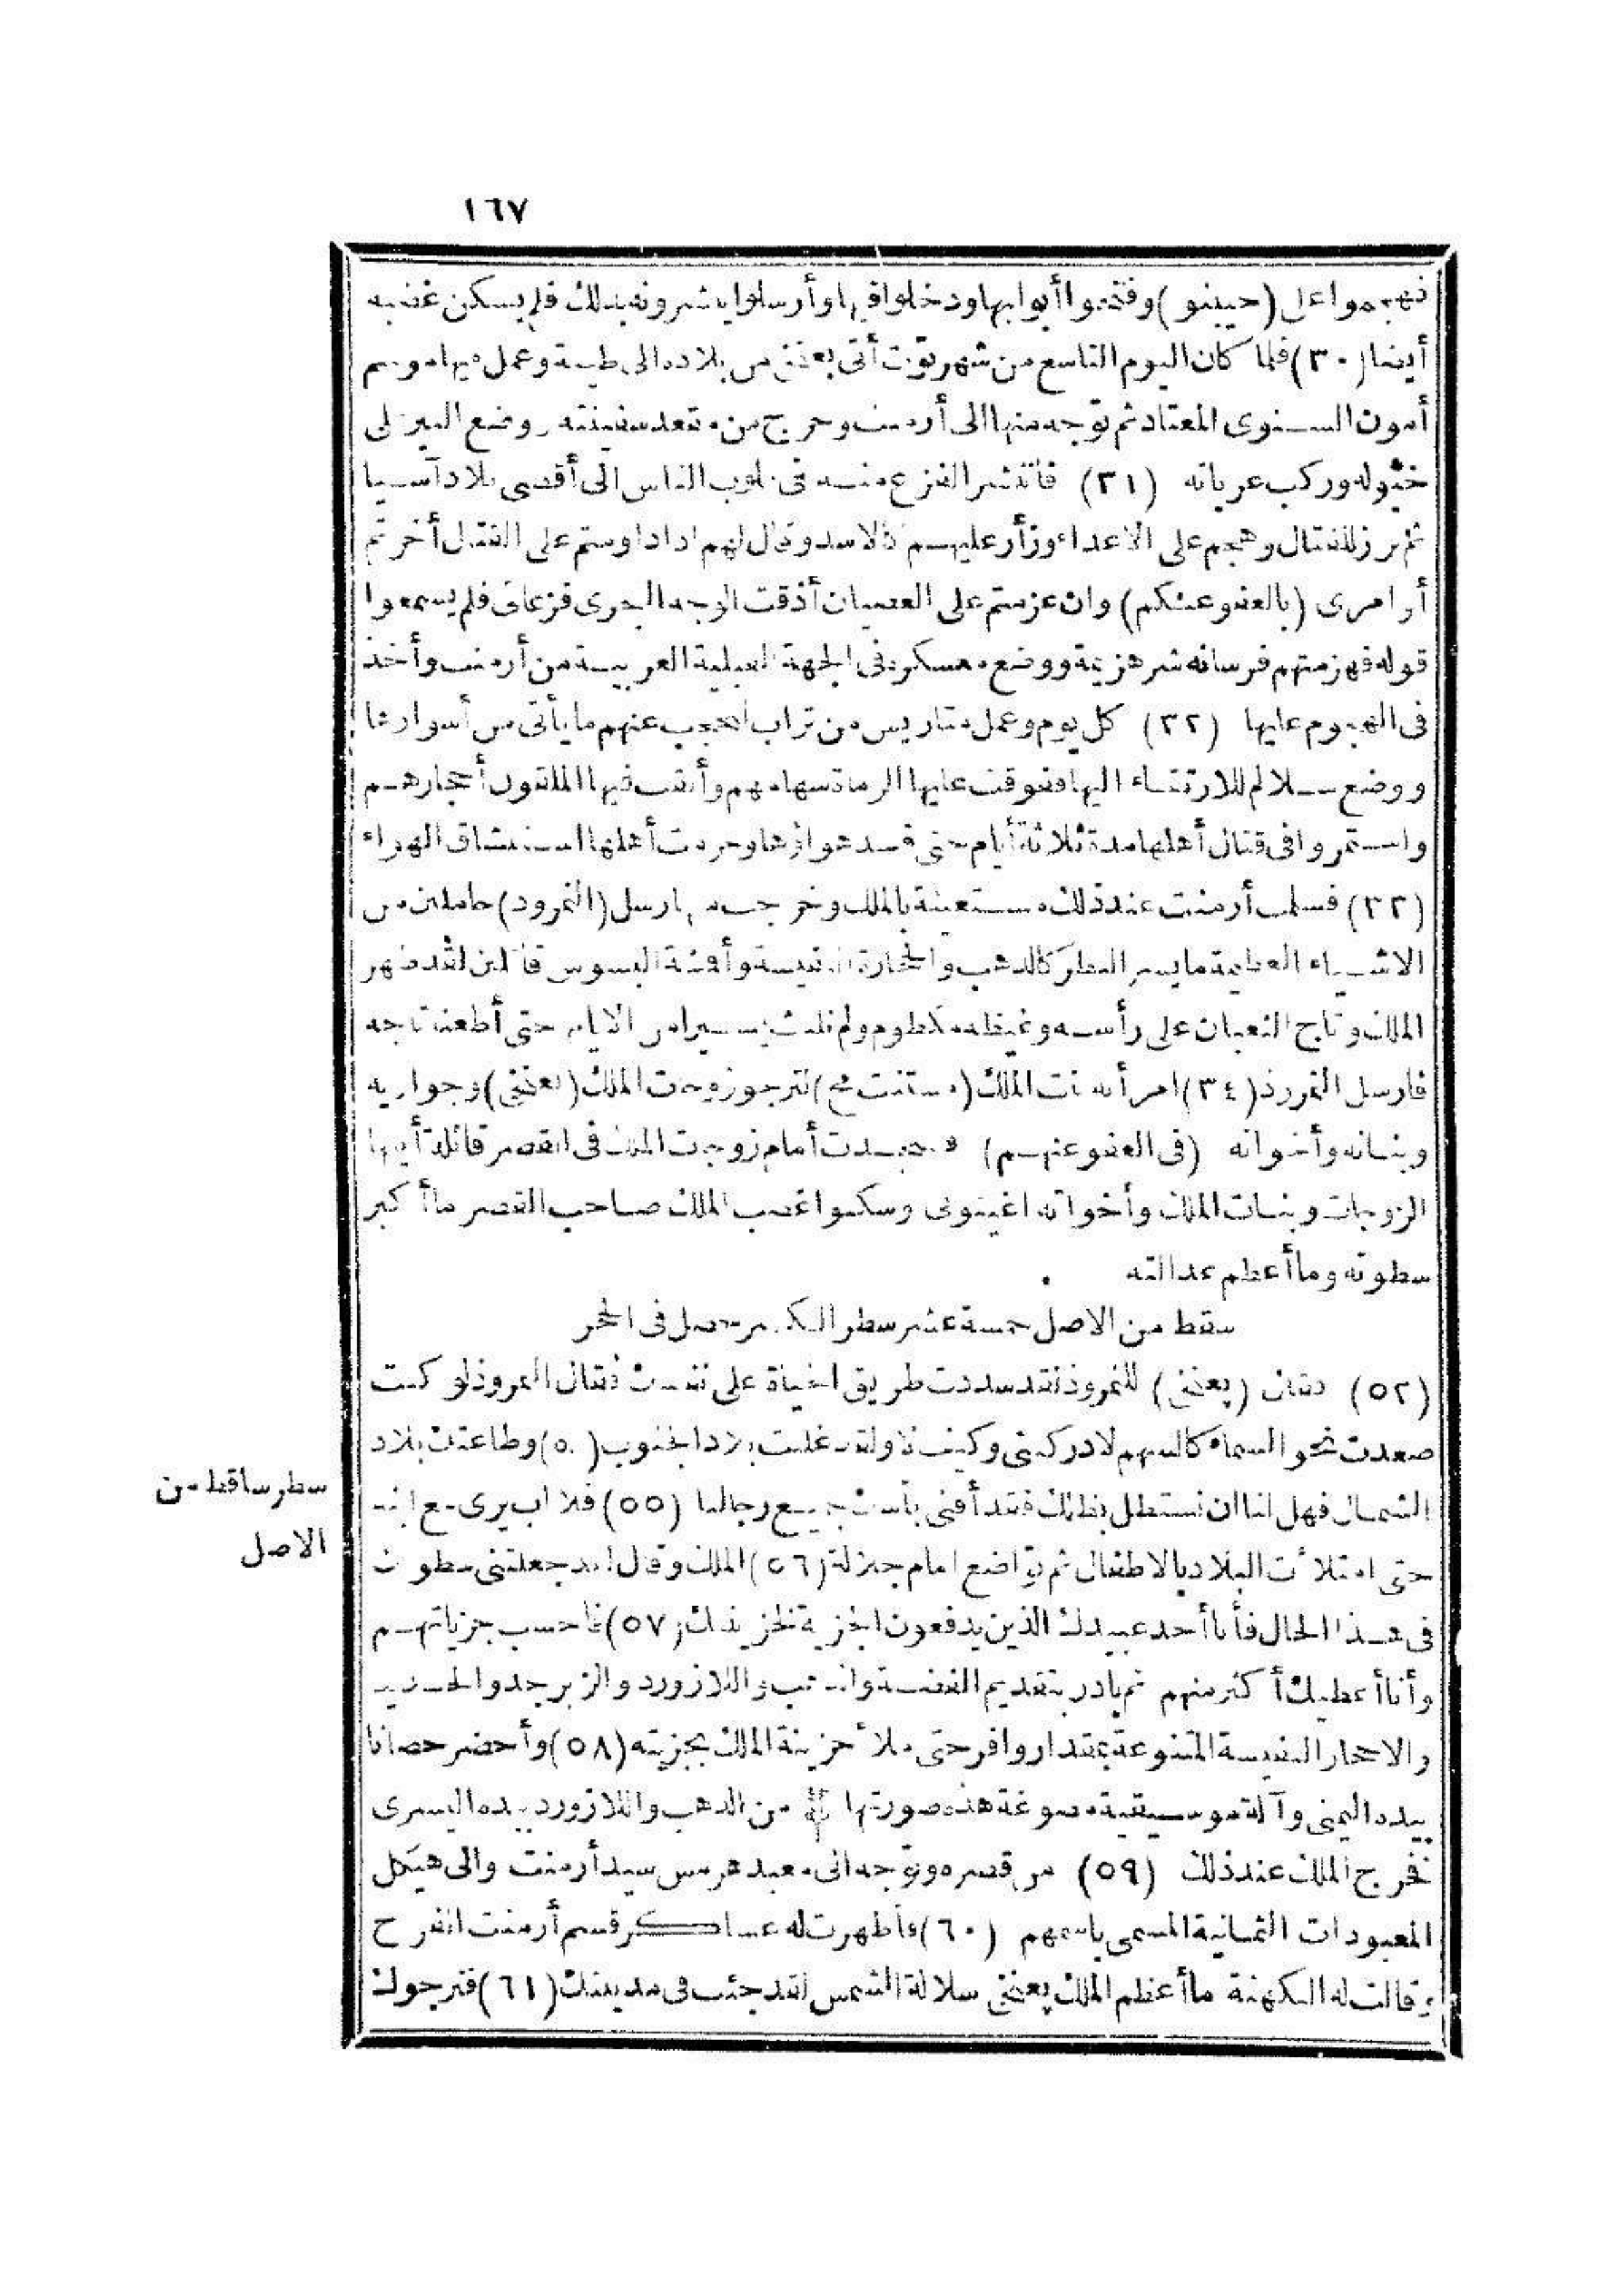 ١٦٧
فهجموا على (حيبنو) وفتحوا أبوابها ودخلوا فيها وأرسلوا يبشرونه بذلك فلم يسكن غضبه
أيضا (٣٠) فلما كان اليوم التاسع من شهر توت أتى بعنخى من بلاده الى طيبة وعمل فيها موسم
أمون السنوى المعتاد ثم توجه منها الى أرمنت وخرج من مقعد سفينته ووضع السير على
خيوله وركب عرباته (٣١) فانتشر الفزع منه فى قلوب الناس الى أقصى بلاد آسيا
ثم برز للقتال وهجم على الاعداء وزأر عليهم كالاسد وقال لهم اذا داومتم على القتال أخرتم
أوامرى (بالعفو عنكم) وان عزمتم على العصيان أذقت الوجه البحرى فزعاتى فلم يسمعوا
قوله فهزمتهم فرسانه شر هزيمة ووضع معسكره فى الجهة القبلية الغربية من أرمنت وأخذ
فى الهجوم عليها (٣٢) كل يوم وعمل متاريس من تراب لتحجب عنهم ما يأتى من أسوارها
ووضع سلالم للارتقاء اليها فتوقفت عليها الرماة بسهامهم وألقت فيها الملقون أحجارهم
واستمروا فى قتال أهلها مدة ثلاثة أيام حتى فسد هواؤها وحرمت أهلها استنشاق الهواء
(٣٣) فسلمت أرمنت عند ذلك مستعينة بالملك وخرجت منها رسل (النمرود) حاملين من
الاشياء العظيمة ما يسر النظر كالذهب والحجارة النفيسة وأقمشة البسوس قائلين لقد ظهر
الملك وتاج الثعبان على رأسه وغيظه مكظوم ولم نلبث يسيرا من الايام حتى أطعنا تاجه
فارسل النمرود (٣٤) امرأته بنت الملك (مستنت مح) لترجو زوجات الملك (بعنخى) وجواريه
وبناته وأخواته (فى العفو عنهم) فسجدت أمام زوجات الملك فى القصر قائلة أيتها
الزوجات وبنات الملك وأخواته اغيثونى وسكنوا غضب الملك صاحب القصر ما أكبر
سطوته وما أعظم عدالته
سقط من الاصل خمسة عشر سطرا لكسر حصل فى الحجر
(٥٢) فقال (بعنخى) للنمروذ لقد سددت طريق الحياة على نفسك فقال النمروذ لو كنت
صعدت نحو السماء كالسهم لادركتنى وكيف لا ولقد غلبت بلاد الجنوب (٥) وطاعتك بلاد
الشمال فهل لنا ان نستظل بظلك فقد أفنى بأسك جميع رجالنا (٥٥) فلا أب يرى مع ابنه
سطر ساقط من
الاصل
حتى امتلأت البلاد بالاطفال ثم تواضع امام جلالة (٥٦) الملك وقال لقد جعلتنى سطوتك
فى هذا الحال فأنا أحد عبيدك الذين يدفعون الجزية لخزينتك (٥٧) فاحسب جزياتهم
وأنا أعطيك أكثر منهم ثم بادر بتقديم الفضة والذهب واللازورد والزبرجد والحديد
والاحجار النفيسة المتنوعة بمقدار وافر حتى ملأ خزينة الملك بجزيته (٥٨) وأحضر حصانا
بيده اليمنى وآلة موسيقية مصوغة هذه صورتها من الذهب واللازورد بيده اليسرى
فخرج الملك عند ذلك (٥٩) من قصره وتوجه الى معبد هرمس سيد أرمنت والى هيكل
المعبودات الثمانية المسمى باسمهم (٦٠) فأظهرت له عساكر قسم أرمنت الفرح
وقالت له الكهنة ما أعظم الملك بعنخى سلالة الشمس لقد جئت فى مدينتك (٦١) فنرجوك